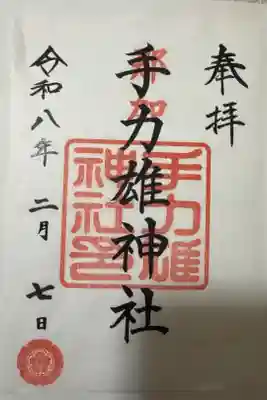 奉拝
那加
手力雄神社
手力雄
神社印
令和八年二月七日